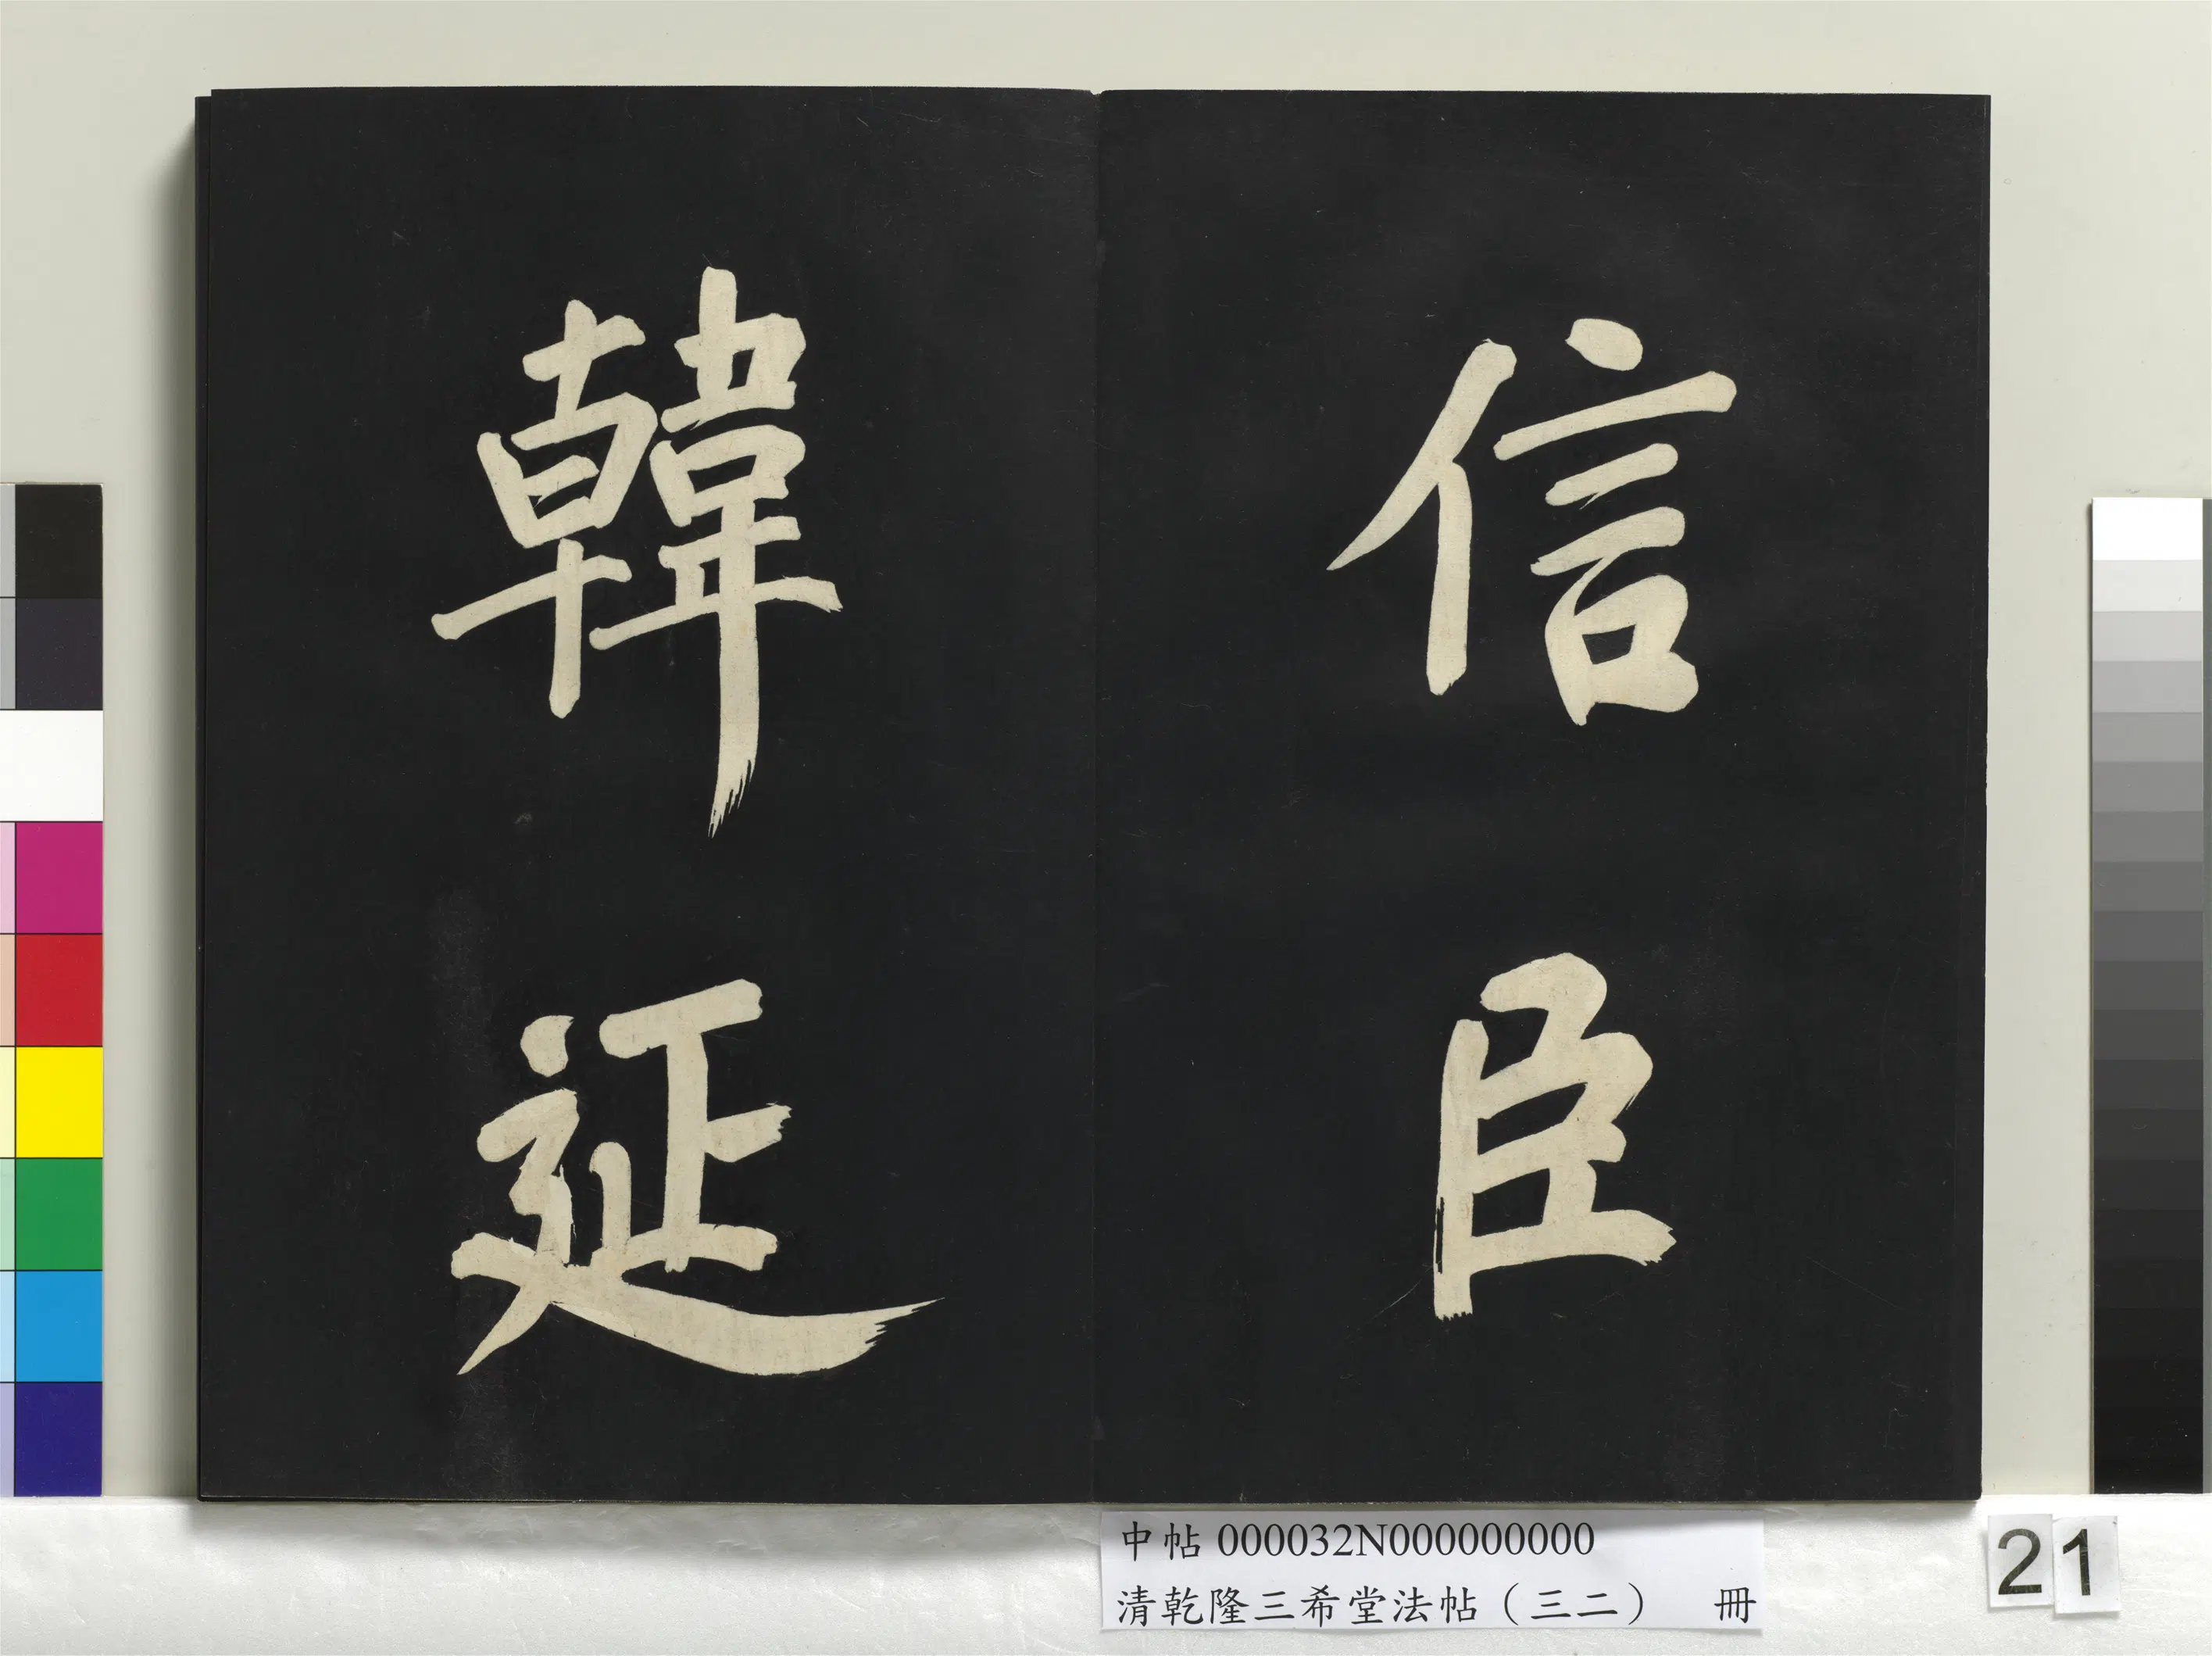 信臣
韓延
中帖 000032N000000000
清乾隆三希堂法帖（三二） 冊
21